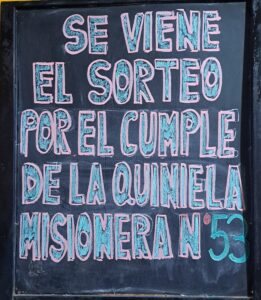 SE VIENE
EL SORTEO
POR EL CUMPLE
DE LA QUINIELA
MISIONERA N°53